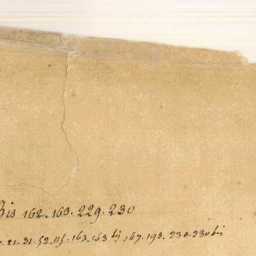 Bis 162. 163. 229. 230
21. 31. 52. 115. 163. 163 bj, 167. 198. 230. 230 bi